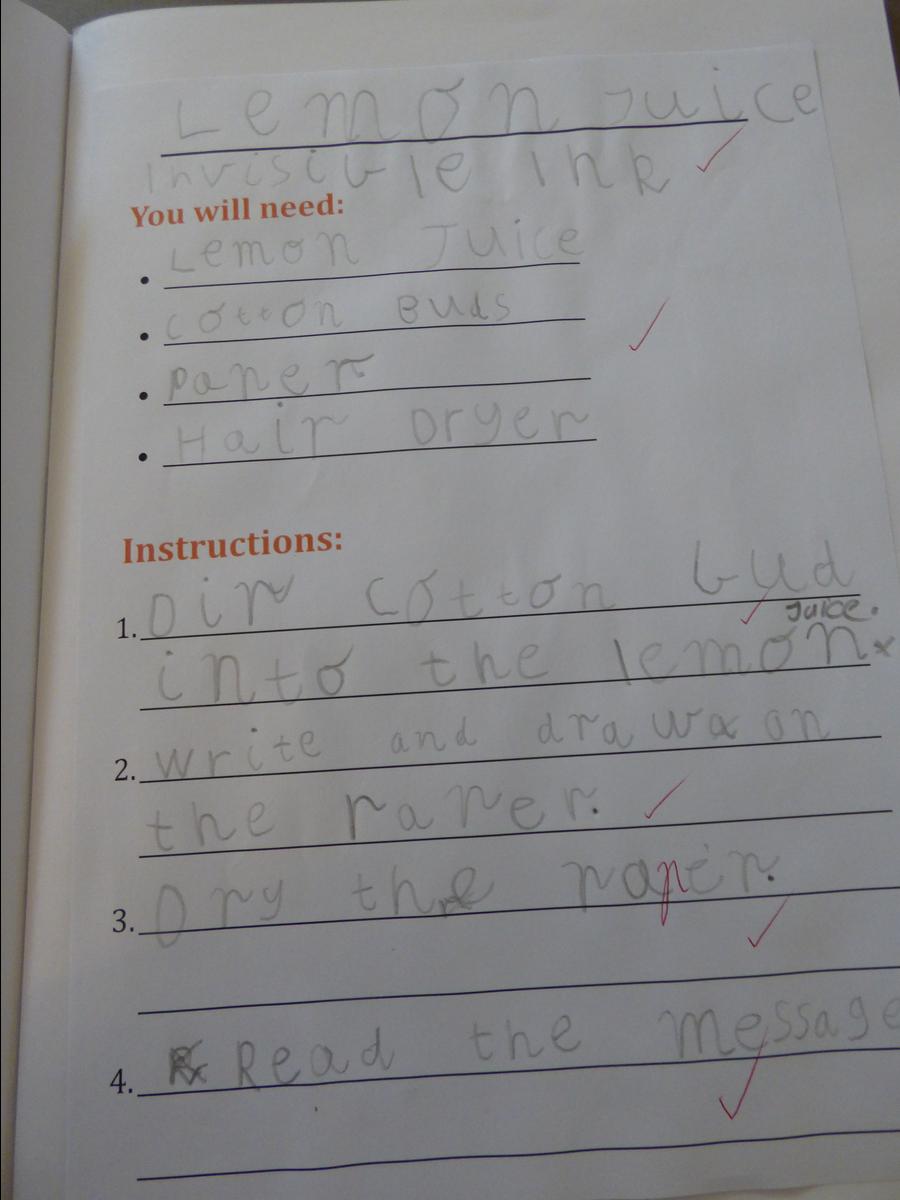 Lemon Juice
Invisible Ink
You will need:
• Lemon Juice
• cotton Buds
• Paper
• Hair Dryer
Instructions:
1. Dip cotton bud
juice.
into the lemon x
2. write and draw on
the paper.
3. Dry the paper.
4. Read the message